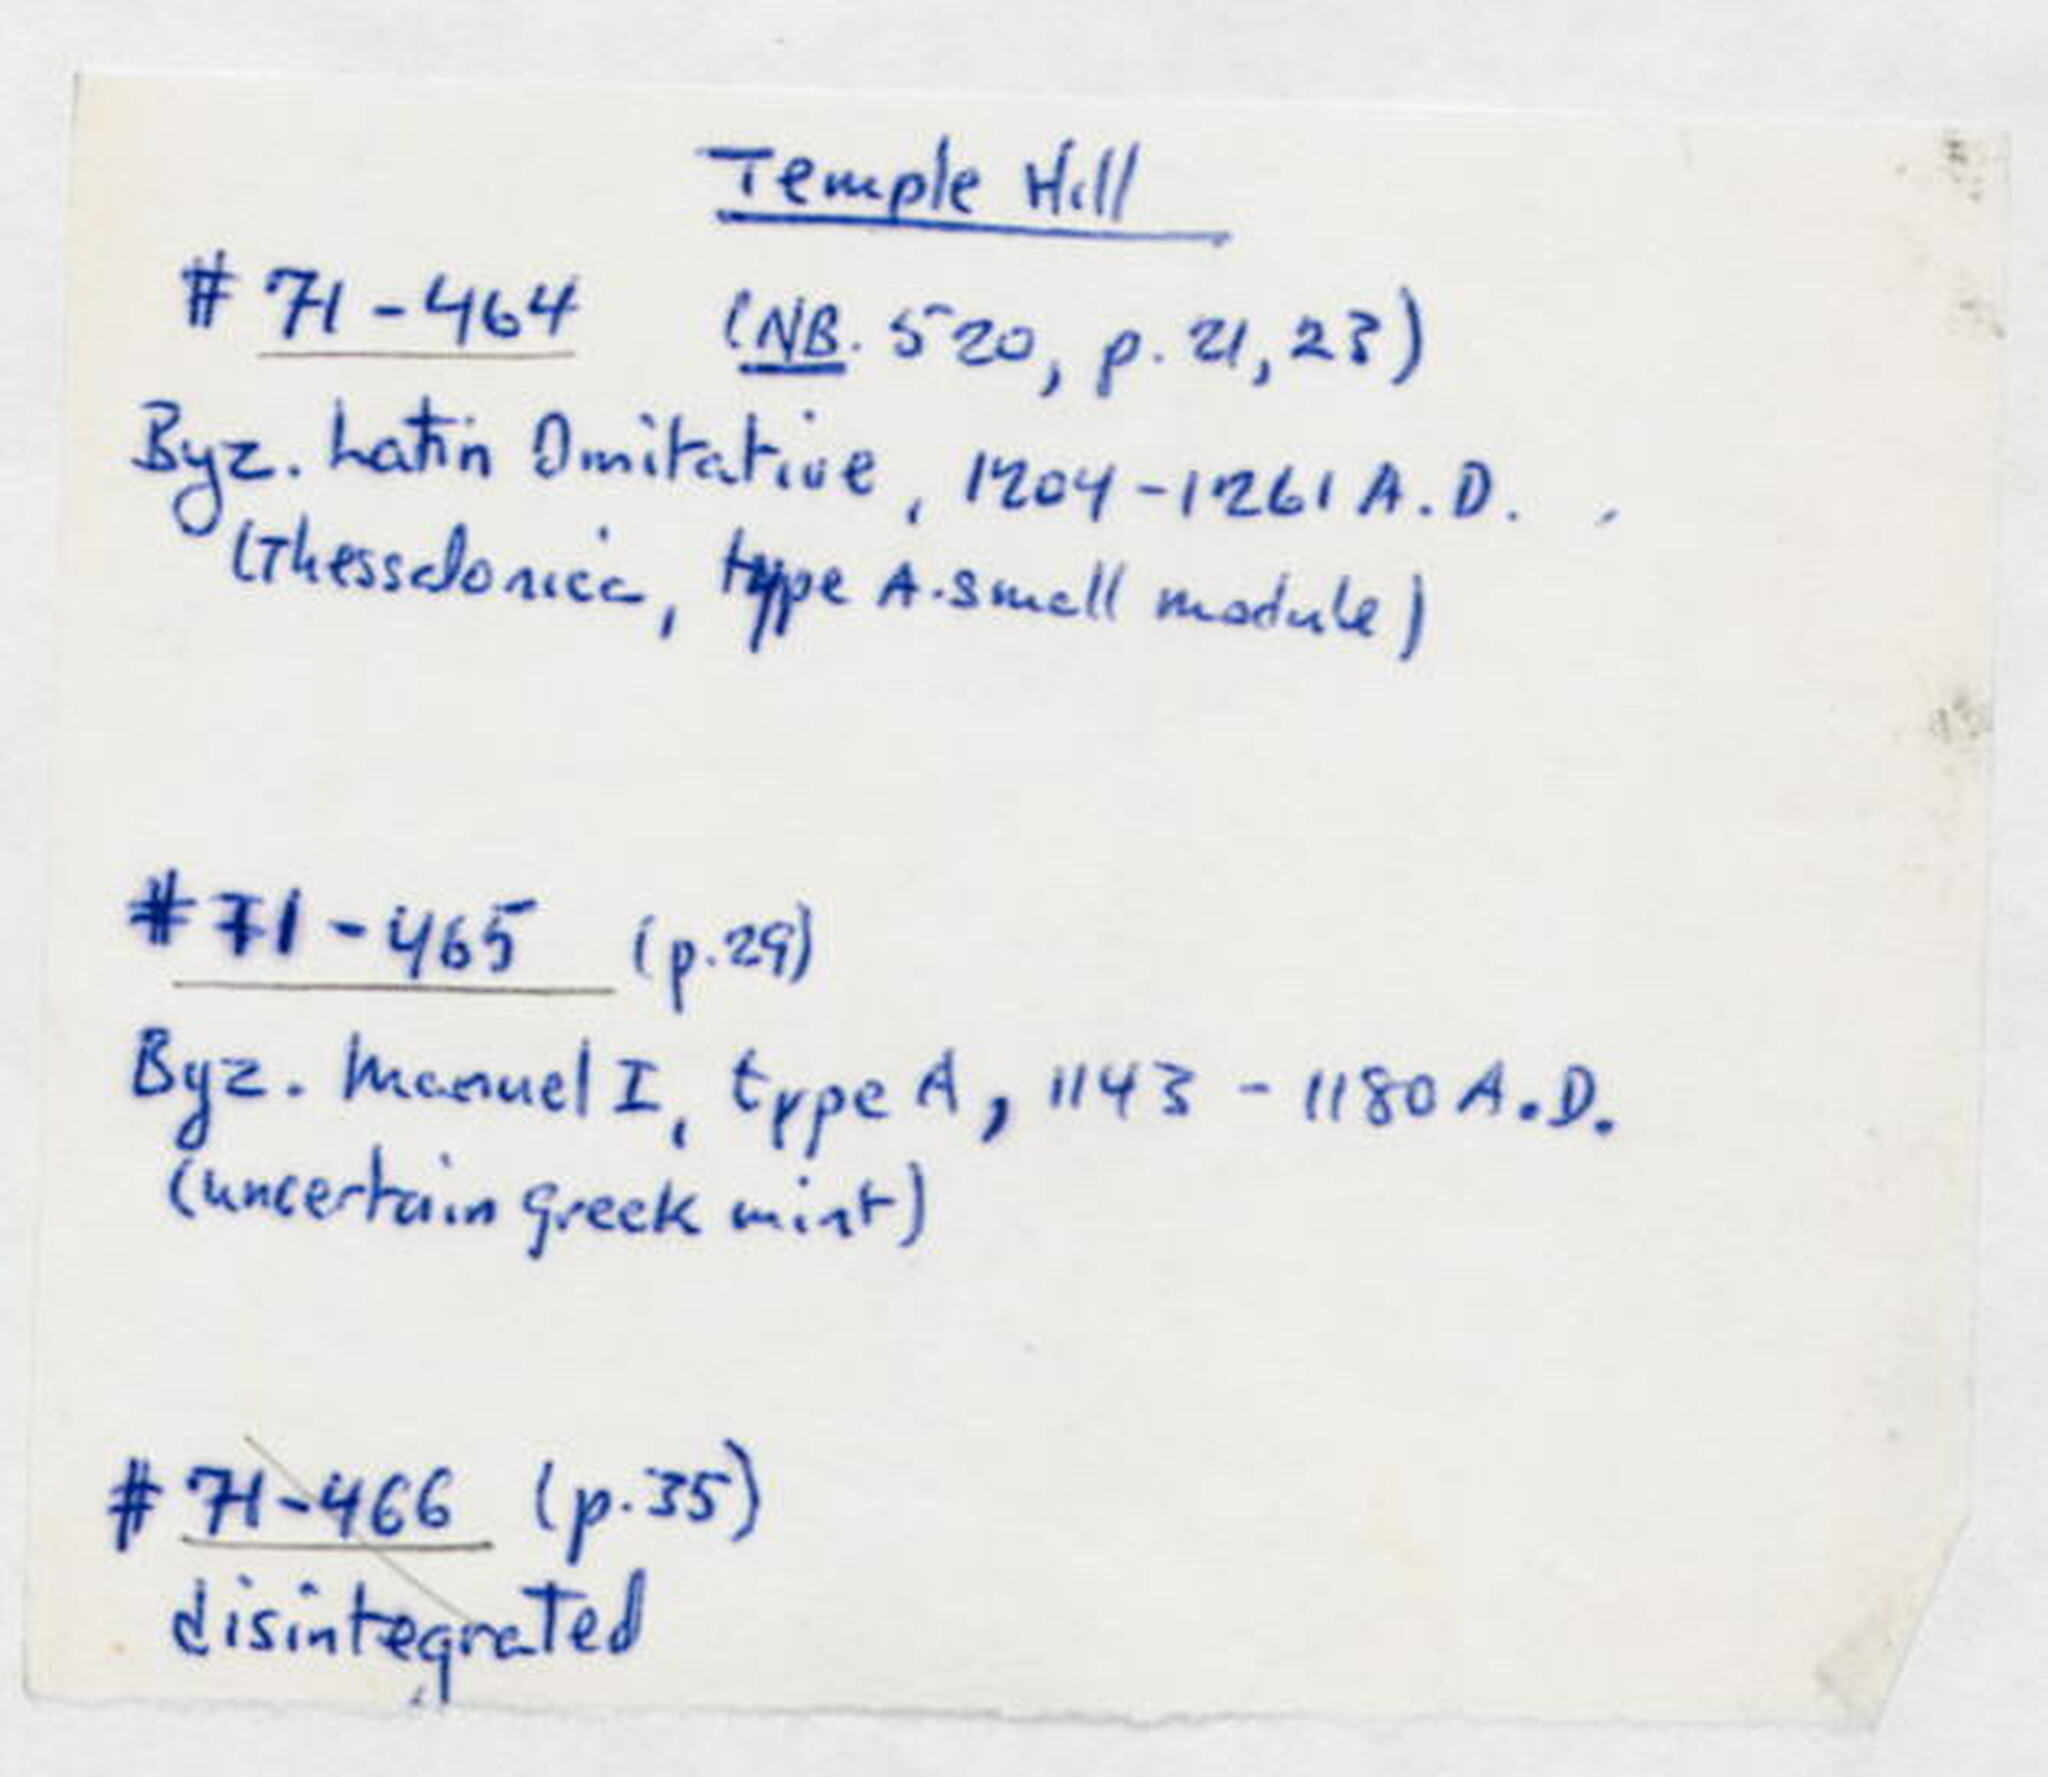 Temple Hill
# 71-464 (NB. 520, p. 21, 23)
Byz. Latin Imitative, 1204-1261 A.D.
(Thessalonica, type A. small module)
# 71-465 (p. 29)
Byz. Manuel I, type A, 1143 - 1180 A.D.
(uncertain greek mint)
# 71-466 (p. 35)
disintegrated